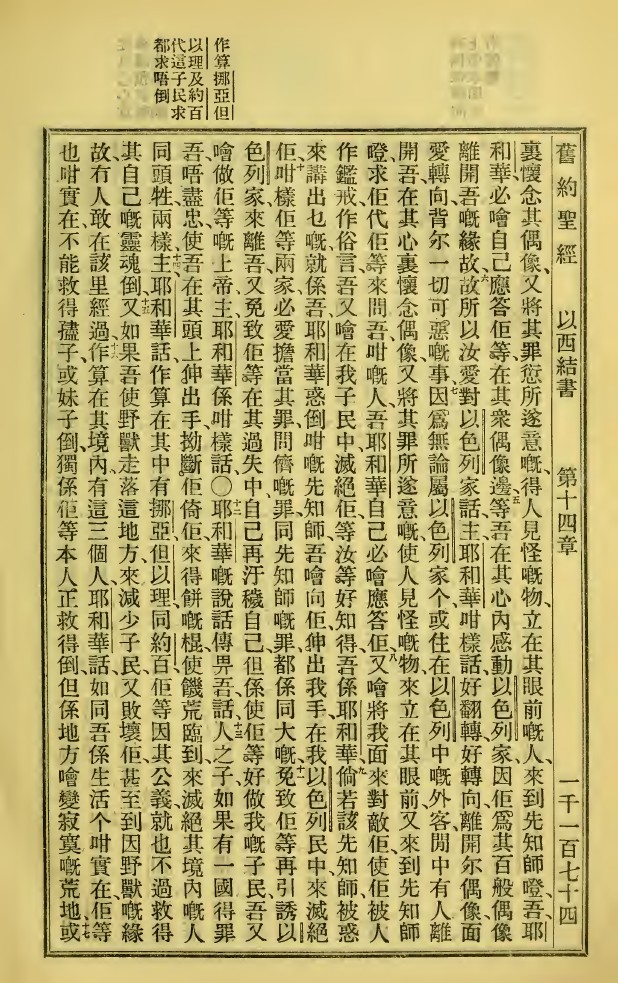 作算挪亞但
以理及約百
代這子民求
都求唔倒
舊約聖經 以西結書 第十四章 一千一百七十四
裏懷念其偶像、又將其罪愆所遂意嘅、得人見怪嘅物、立在其眼前嘅人、來到先知師嘚、吾耶
和華必噲自己應答佢等、在其衆偶像邊、五等吾在其心內感動以色列家、因佢爲其百般偶像、
離開吾嘅緣故、六故所以汝愛對以色列家話、主耶和華咁樣話、好翻轉、好轉向、離開尔偶像、面
愛轉向背尔一切可惡嘅事、七因爲無論屬以色列家个、或住在以色列中嘅外客、閒中有人離
開吾、在其心裏懷念偶像、又將其罪所遂意嘅使人見怪嘅物、來立在其眼前、又來到先知師
嘚、求佢代佢等來問吾、咁嘅人吾耶和華自己必噲應答佢、八又噲將我面來對敵佢、使佢被人
作鑑戒、作俗言、吾又噲在我子民中、滅絕佢等、汝等好知得吾係耶和華、九倘若該先知師被惑
來講出乜嘅、就係吾耶和華惑倒咁嘅先知師、吾噲向佢伸出我手、在我以色列民中、來滅絕
佢、十咁樣佢等兩家必愛擔當其罪、問儕嘅罪、同先知師嘅罪、都係同大嘅、十一免致佢等再引誘以
色列家、來離吾、又免致佢等在其過失中、自己再汙穢自己、但係使佢等好做我嘅子民、吾又
噲做佢等嘅上帝、主耶和華係咁樣話、〇十二耶和華嘅說話、傳畀吾話、十三人之子、如果有一國得罪
吾、唔盡忠、使吾在其頭上伸出手、拗斷佢倚佢來得餅嘅棍、使饑荒臨到、來滅絕其境內嘅人
同頭牲兩樣、十四主耶和華話、作算在其中有挪亞、但以理、同約百、佢等因其公義、就也不過救得
其自己嘅靈魂倒、十五又如果吾使野獸走落這地方、來減少子民、又敗壞佢甚至到因野獸嘅緣
故、有人敢在該里經過、十六作算在其境內有這三個人、耶和華話、如同吾係生活个、咁實在佢等
也咁實在不能救得孻子或妹子倒、獨係佢等本人正救得倒、但係地方噲變寂寞嘅荒地、十七或